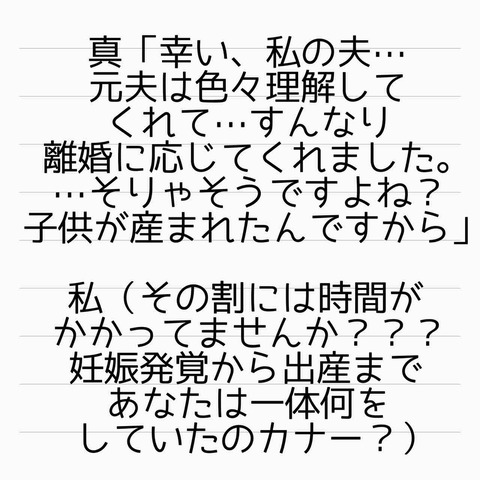 真「幸い、私の夫…
元夫は色々理解して
くれて…すんなり
離婚に応じてくれました。
…そりゃそうですよね？
子供が産まれたんですから」
私（その割には時間が
かかってませんか？？？
妊娠発覚から出産まで
あなたは一体何を
していたのカナー？）